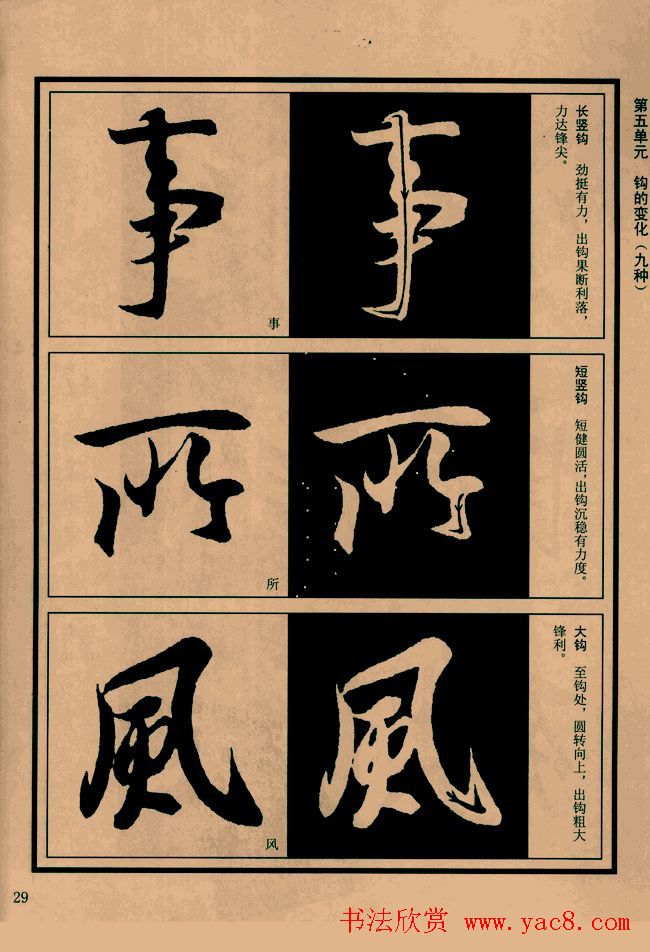 第五单元 钩的变化（九种）
长竖钩 劲挺有力，出钩果断利落，
力达锋尖。
事
事
事
短竖钩 短健圆活，出钩沉稳有力度。
所
所
所
大钩 至钩处，圆转向上，出钩粗大
锋利。
風
風
风
29
书法欣赏 www.yac8.com